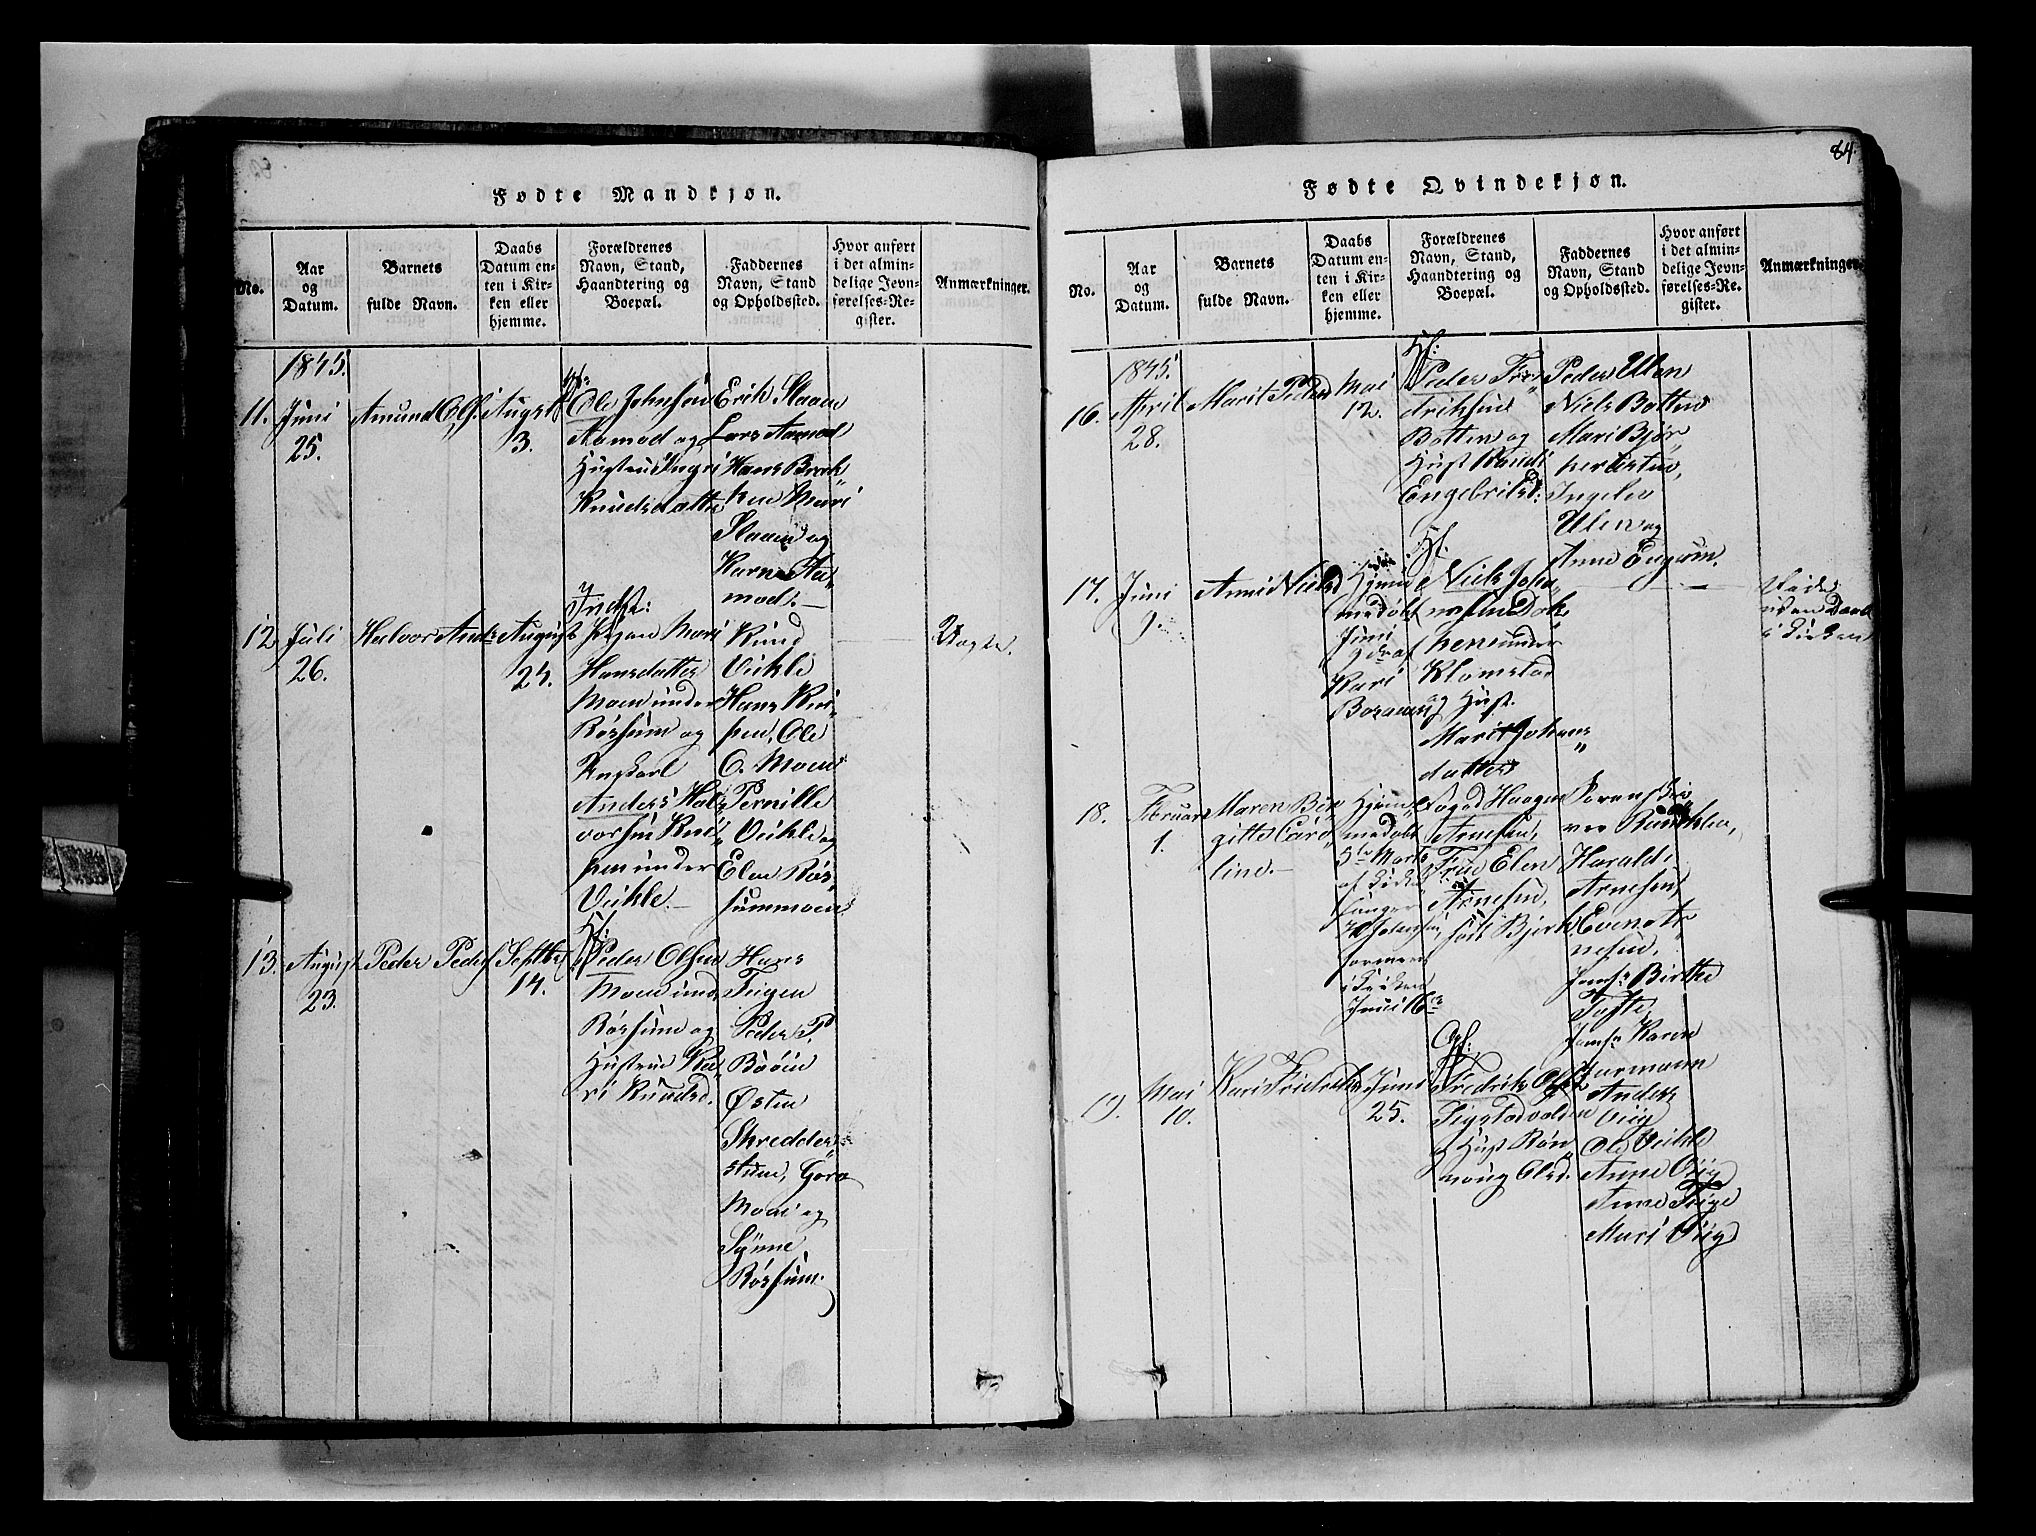 84.
Fødte Mandkjøn.
No.
Aar
og
Datum.
Barnets
fulde Navn.
Daabs
Datum en-
ten i Kir-
ken eller
hjemme.
Forældrenes
Navn, Stand,
Haandtering og
Boepæl.
Faddernes
Navn, Stand
og Opholdssted.
Hvor anført
i det almin-
delige Jevn-
førelses-Re-
gister.
Anmærkninger.
1845.
11.
Juni
25.
Amund Ols
Augst
3.
Ole Johnsen
Aamod og
Hustru Ingri
Knudsdatter
Erik Slaaen
Lars Aamod
Hans Bræk
ken Mari
Slaaen og
Aa„
mod.
12.
Juli
26.
Halvor Ands
August
24.
Indst:
Pigen Mari
Hansdatter
Moen under
Røssum og
Ungkarl
Anders Hal„
vorsen
under
Veikle.
Knud
Veikle
Hans
Ole
O. Moen
Pernille
Veikle og
Elen Røs„
summoen
13.
August
23.
Peder Peds
Septbr
14.
Hf:
Peder Olsen
Moen und.
Røssum og
Hustrue Ka„
ri Knudsd.
Hans
Peder P.
Østen
Skredder„
stuen, Göro
Moen og
Synne
Røssum.
Fødte Qvindekjøn.
No.
Aar
og
Datum.
Barnets
fulde Navn.
Daabs
Datum en-
ten i Kir-
ken eller
hjemme.
Forældrenes
Navn, Stand,
Haandtering og
Boepæl.
Faddernes
Navn, Stand
og Opholdssted.
Hvor anført
i det almin-
delige Jevn-
førelses-Re-
gister.
Anmærkninger.
1845.
16.
April
28.
Marit Peder
Mai
12.
Hf:
Peder Fre„
driksen
Botten og
Hust Randi
Engebritsd:
Peder Ulen
Niels Botten
Mari Bjør„
Ingeler
Ulen og
Anne Engum.
17.
Juni
9.
Anne Nielsd
Hjem„
medøbt
Juni
Kari
Hf.
Niels Joha„
under
Klomstad
og Hust.
Marit Johans
datter
Døde
uden Daab
i Kirken
18.
Februar
1.
Maren Bir„
gitte Caro„
line.
Hjem„
medøbt
5te Marts
af Kirke
sanger
i Kirken
Juni 16de
Foged Haagen
Arnesen,
Frue Elen
Arnesen,
født Bjerk
Sorenskri„
ver
Harald
Arnesen,
Even Ar„
nesen,
Jomfr Birthe
Tofte,
Jomfr Karen
19.
Mai
10.
Kari
Juni
25.
Gf:
Fredrik Olsen
og Hust Røn„
noug Olsd.
Anders
Viig
Ole Veikle
Anne Viig
Anne
Mari Viig